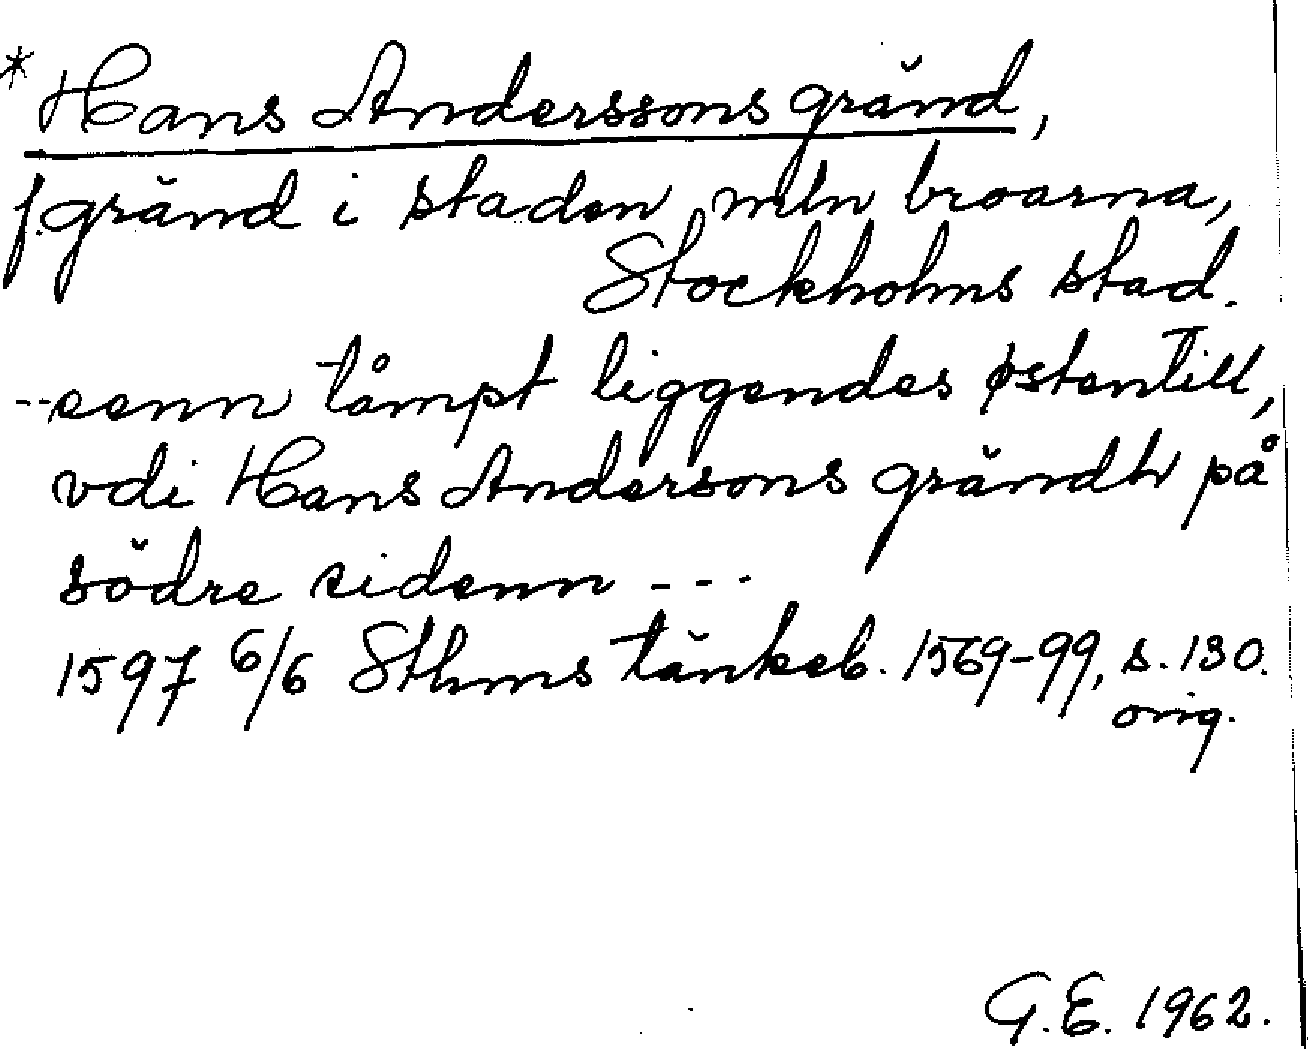 * Hans Anderssons gränd,
f. gränd i staden mln broarna,
Stockholms stad.
--eenn tåmpt liggendes østentill,
vdi Hans Andersons grändh på
södre sidenn ---
1597 6/6 Sthms tänkeb. 1569-99, s. 130.
orig.
G.E. 1962.